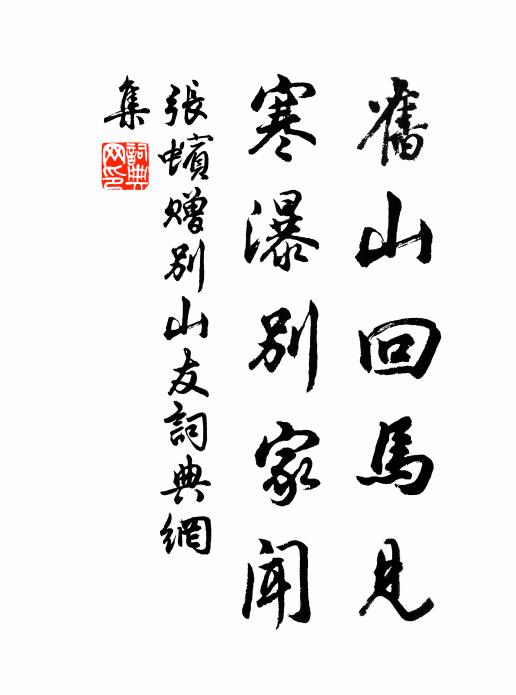 舊山回馬見
寒瀑別家聞
張蠙贈別山友詞典網
集
詞典
网印